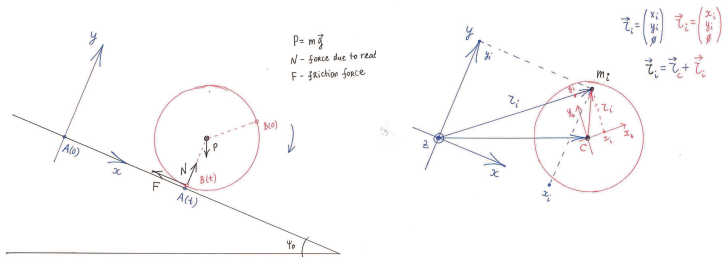 P = m g⃗
N - force due to real
F - friction force
y
A(0)
x
F
N
P
B(0)
B(t)
A(t)
φ₀
r⃗ᵢ = (xᵢ yᵢ 0)
r⃗ᵢ = (xᵢ yᵢ 0)
r⃗ᵢ = r⃗c + r⃗ᵢ
y
yᵢ
mᵢ
rᵢ
yᵢ
y₀
rᵢ
x₀
xᵢ
z
C
x
xᵢ